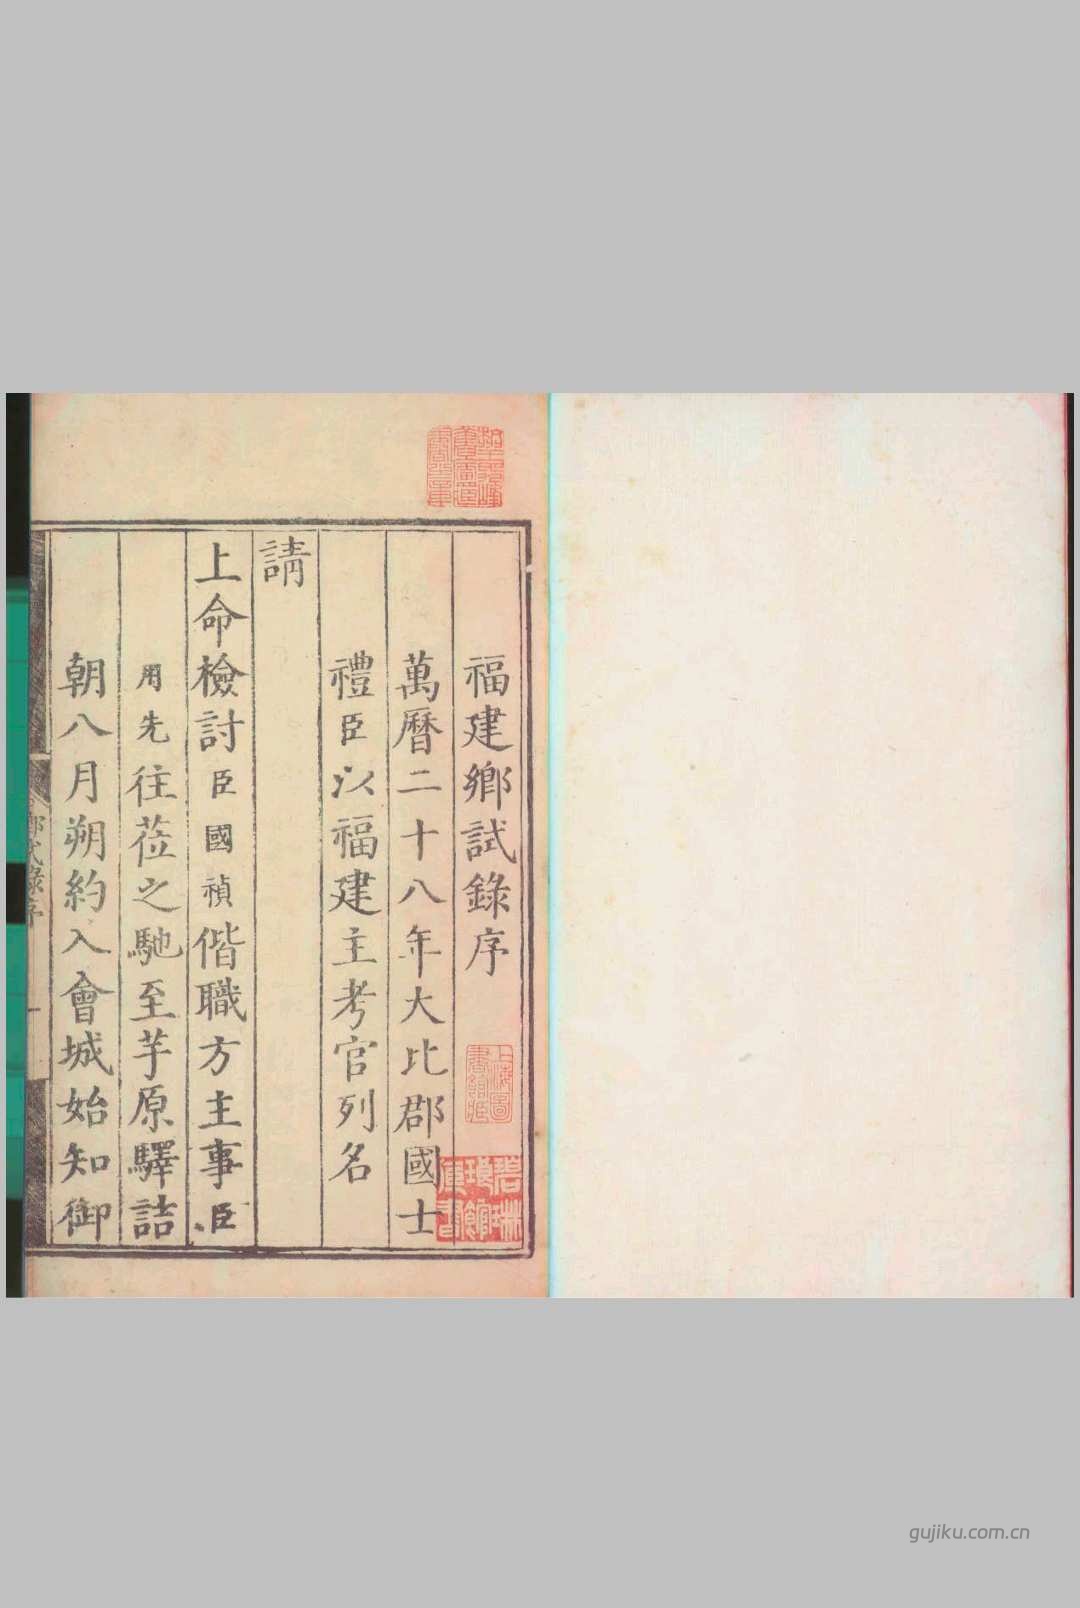 福建鄉試錄序
萬曆二十八年大比郡國士
禮臣以福建主考官列名
請
上命檢討臣國禎偕職方主事臣
用先往蒞之馳至芋原驛詰
朝八月朔約入會城始知御
上海圖書館藏
碧琳琅館
gujiku.com.cn